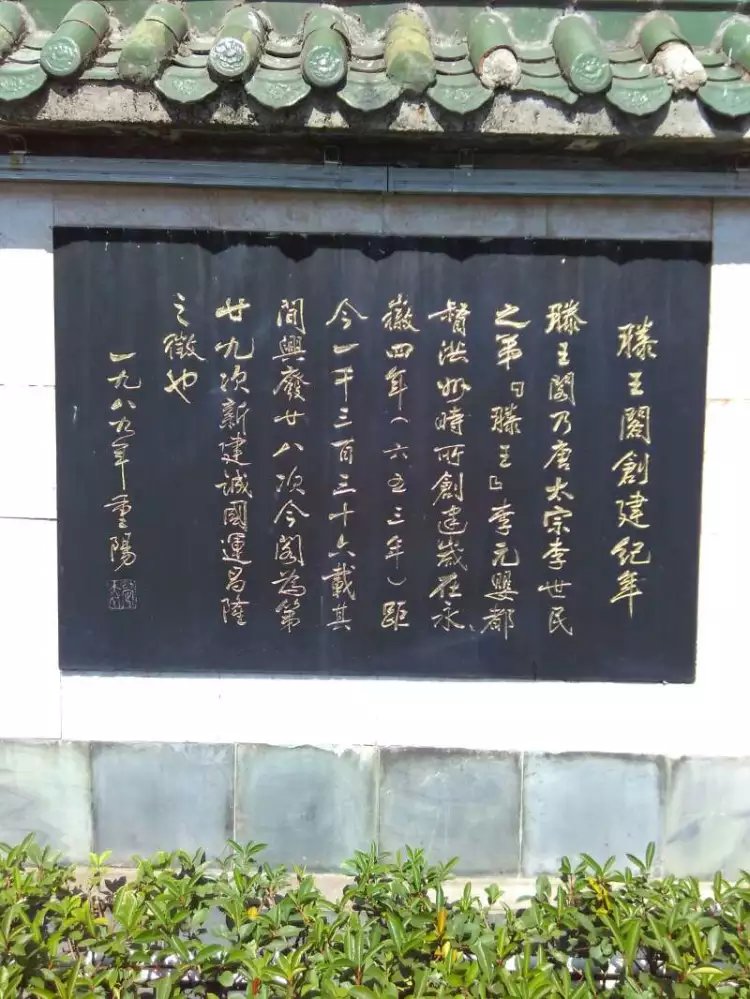 滕王閣創建紀年
滕王閣乃唐太宗李世民
之弟「滕王」李元嬰都
督洪州時所創建歲在永
徽四年（六五三年）距
今一千三百三十六載其
間興廢廿八次今閣為第
廿九次新建誠國運昌隆
之徵也
一九八九年重陽